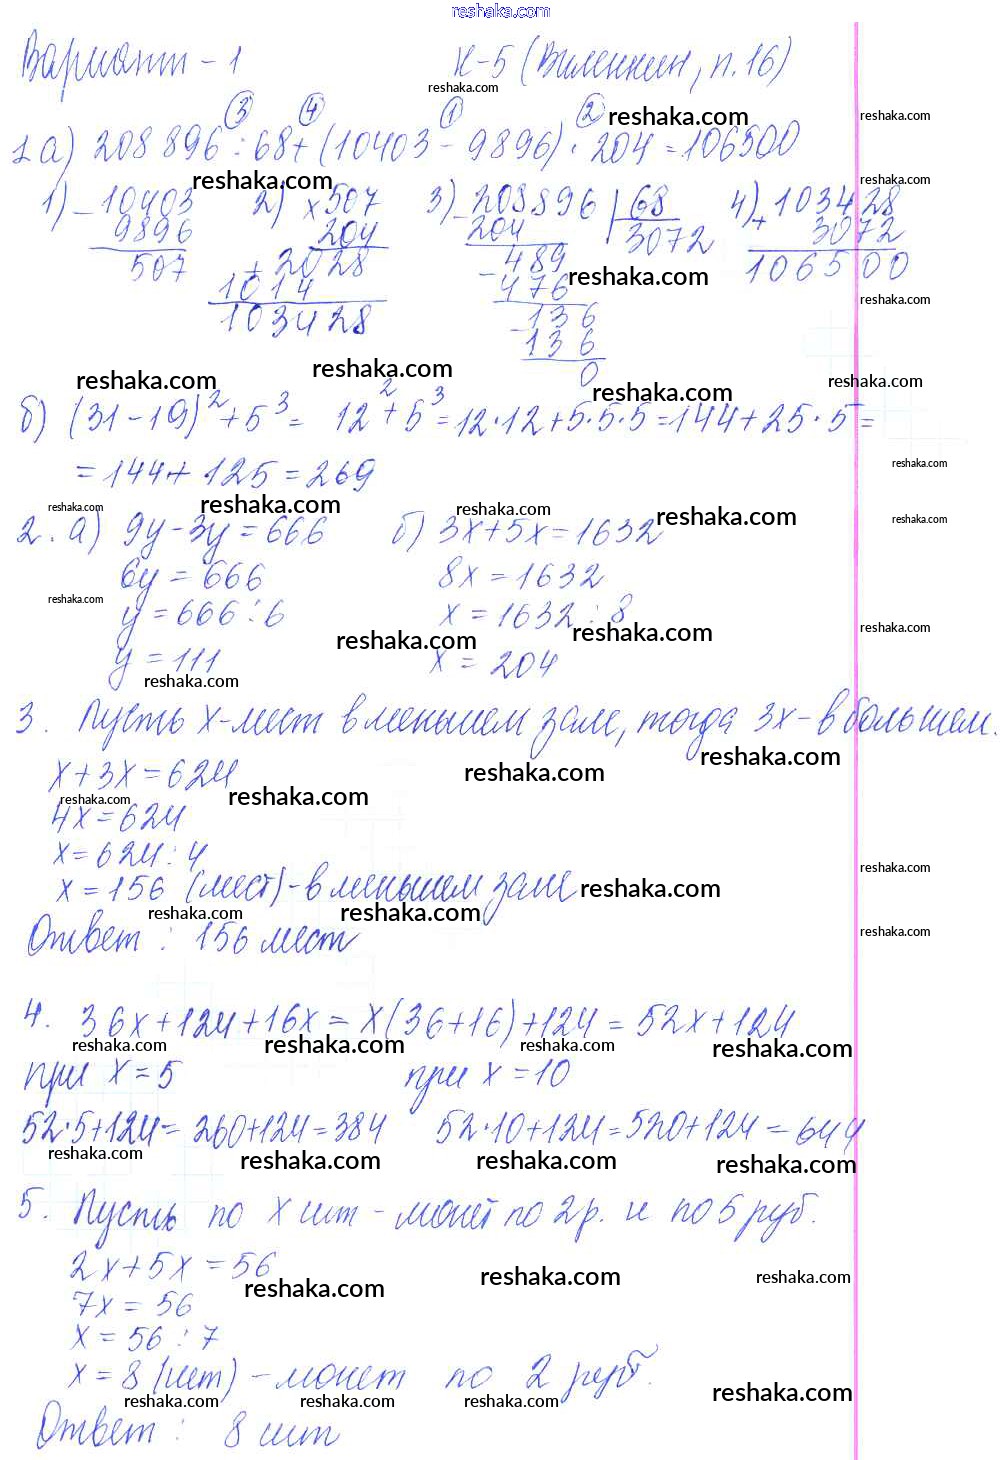 reshaka.com
Вариант - 1 К-5 (Виленкин, п.16)
reshaka.com
③ ④ ① ② reshaka.com reshaka.com
1 а) 208 896 : 68 + (10403 - 9896) · 204 = 106500
reshaka.com reshaka.com
1) - 10403 2) × 507 3) - 208896 | 68 4) + 103428
9896 204 204 3072 3072
507 + 2028 - 489 106500
1014 476 reshaka.com reshaka.com
103428 - 136
136
0
reshaka.com reshaka.com reshaka.com reshaka.com
б) (31 - 19)² + 5³ = 12² + 5³ = 12 · 12 + 5 · 5 · 5 = 144 + 25 · 5 =
= 144 + 125 = 269 reshaka.com
reshaka.com reshaka.com reshaka.com reshaka.com reshaka.com
2. а) 9y - 3y = 666 б) 3x + 5x = 1632
6y = 666 8x = 1632
reshaka.com
y = 666 : 6 x = 1632 : 8
reshaka.com reshaka.com reshaka.com
y = 111 x = 204
reshaka.com
3. Пусть x - мест в меньшем зале, тогда 3x - в большем.
reshaka.com reshaka.com
x + 3x = 624
reshaka.com reshaka.com
4x = 624
x = 624 : 4
reshaka.com
x = 156 (мест) - в меньшем зале reshaka.com
reshaka.com reshaka.com
Ответ : 156 мест reshaka.com
4. 36x + 124 + 16x = x(36 + 16) + 124 = 52x + 124
reshaka.com reshaka.com reshaka.com reshaka.com
при x = 5 при x = 10
52 · 5 + 124 = 260 + 124 = 384 52 · 10 + 124 = 520 + 124 = 644
reshaka.com reshaka.com reshaka.com reshaka.com
5. Пусть по x шт - монет по 2 р. и по 5 руб.
2x + 5x = 56
reshaka.com reshaka.com reshaka.com
7x = 56
x = 56 : 7
x = 8 (шт) - монет по 2 руб.
reshaka.com reshaka.com reshaka.com reshaka.com
Ответ : 8 шт